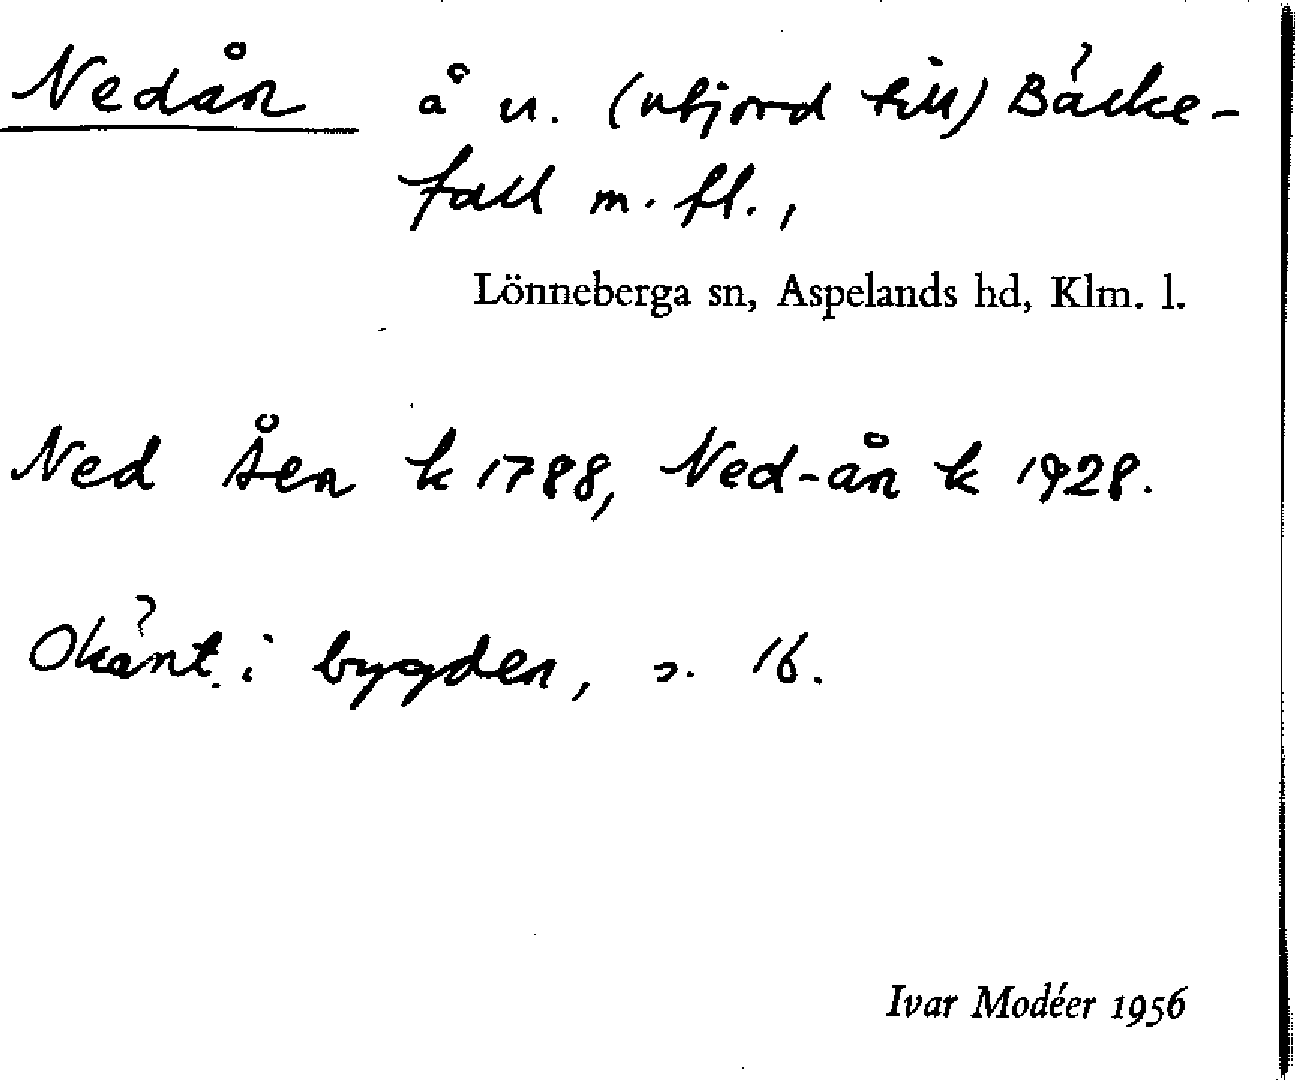 Nedån å n. (utjord till) Bäcke-
fall m. fl.,
Lönneberga sn, Aspelands hd, Klm. l.
Ned Åen k 1788, Ned-ån k 1928.
Okänt i bygden, s. 16.
Ivar Modéer 1956